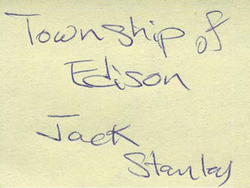 Township of
Edison
Jack
Stanley